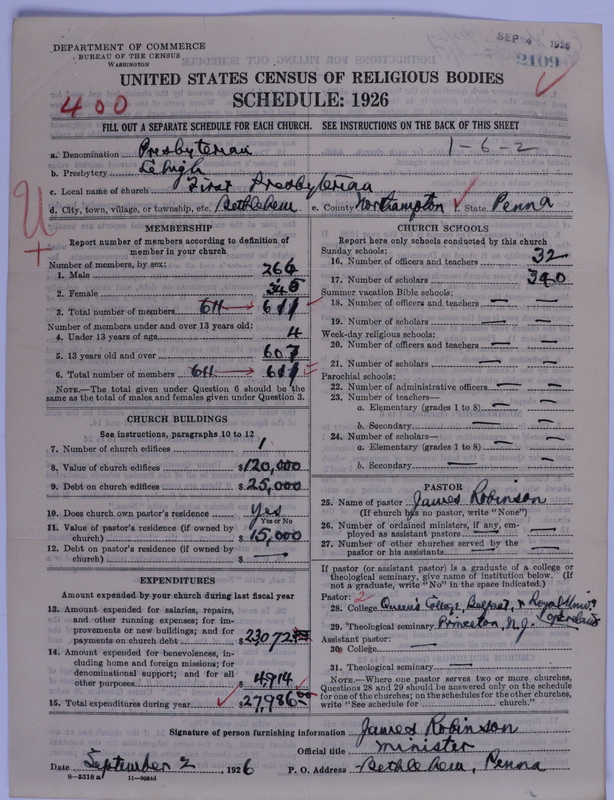 DEPARTMENT OF COMMERCE
BUREAU OF THE CENSUS
WASHINGTON
SEP 4 1926
UNITED STATES CENSUS OF RELIGIOUS BODIES
SCHEDULE: 1926
400
FILL OUT A SEPARATE SCHEDULE FOR EACH CHURCH. SEE INSTRUCTIONS ON THE BACK OF THIS SHEET
1-6-2
a. Denomination Presbyterian
b. Presbytery Lehigh
c. Local name of church First Presbyterian
d. City, town, village, or township, etc. Bethlehem e. County Northampton f. State Penna
MEMBERSHIP
Report number of members according to definition of
member in your church
Number of members, by sex:
1. Male 266
2. Female 345
3. Total number of members 611 611
Number of members under and over 13 years old:
4. Under 13 years of age 4
5. 13 years old and over 607
6. Total number of members 611 611
NOTE.—The total given under Question 6 should be the
same as the total of males and females given under Question 3.
CHURCH BUILDINGS
See instructions, paragraphs 10 to 12
7. Number of church edifices 1
8. Value of church edifices $120,000
9. Debt on church edifices $25,000
10. Does church own pastor's residence? yes
Yes or No
11. Value of pastor's residence (if owned by
church) $15,000
12. Debt on pastor's residence (if owned by
church) $ —
EXPENDITURES
Amount expended by your church during last fiscal year
13. Amount expended for salaries, repairs,
and other running expenses; for im-
provements or new buildings; and for
payments on church debt $23072
14. Amount expended for benevolences,
including home and foreign missions; for
denominational support; and for all
other purposes $4914
15. Total expenditures during year $27986.00
CHURCH SCHOOLS
Report here only schools conducted by this church
Sunday schools:
16. Number of officers and teachers 32
17. Number of scholars 340
Summer vacation Bible schools:
18. Number of officers and teachers — —
19. Number of scholars — —
Week-day religious schools:
20. Number of officers and teachers — —
21. Number of scholars — —
Parochial schools:
22. Number of administrative officers — —
23. Number of teachers—
a. Elementary (grades 1 to 8) — —
b. Secondary — —
24. Number of scholars—
a. Elementary (grades 1 to 8) — —
b. Secondary — —
PASTOR
25. Name of pastor James Robinson
(If church has no pastor, write "None")
26. Number of ordained ministers, if any, em-
ployed as assistant pastors —
27. Number of other churches served by the
pastor or his assistants — —
If pastor (or assistant pastor) is a graduate of a college or
theological seminary, give name of institution below. (If
not a graduate, write "No" in the space indicated.)
Pastor: 2
28. College Queen's College, Belfast, & Royal Univ. of Ireland
29. Theological seminary Princeton, N.J.
Assistant pastor:
30. College —
31. Theological seminary —
NOTE.—Where one pastor serves two or more churches,
Questions 28 and 29 should be answered only on the schedule
for one of the churches; on the schedules for the other churches,
write "See schedule for church."
Signature of person furnishing information James Robinson
Official title minister
Date September 2, 1926 P. O. Address Bethlehem, Penna
8—5518 a